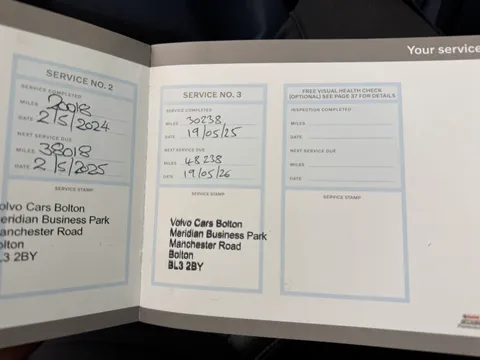 Your service
SERVICE NO. 2
SERVICE COMPLETED
MILES 20018
DATE 2/5/2024
NEXT SERVICE DUE
MILES 38018
DATE 2/5/2025
SERVICE STAMP
olvo Cars Bolton
eridian Business Park
anchester Road
olton
.3 2BY
SERVICE NO. 3
SERVICE COMPLETED
MILES 30238
DATE 19/05/25
NEXT SERVICE DUE
MILES 48238
DATE 19/05/26
SERVICE STAMP
Volvo Cars Bolton
Meridian Business Park
Manchester Road
Bolton
BL3 2BY
FREE VISUAL HEALTH CHECK
(OPTIONAL) SEE PAGE 37 FOR DETAILS
INSPECTION COMPLETED
MILES
DATE
NEXT SERVICE DUE
MILES
DATE
SERVICE STAMP